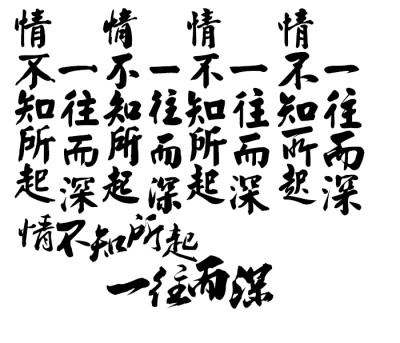 情不知所起
一往而深
情不知所起
一往而深
情不知所起
一往而深
情不知所起
一往而深
情不知所起
一往而深